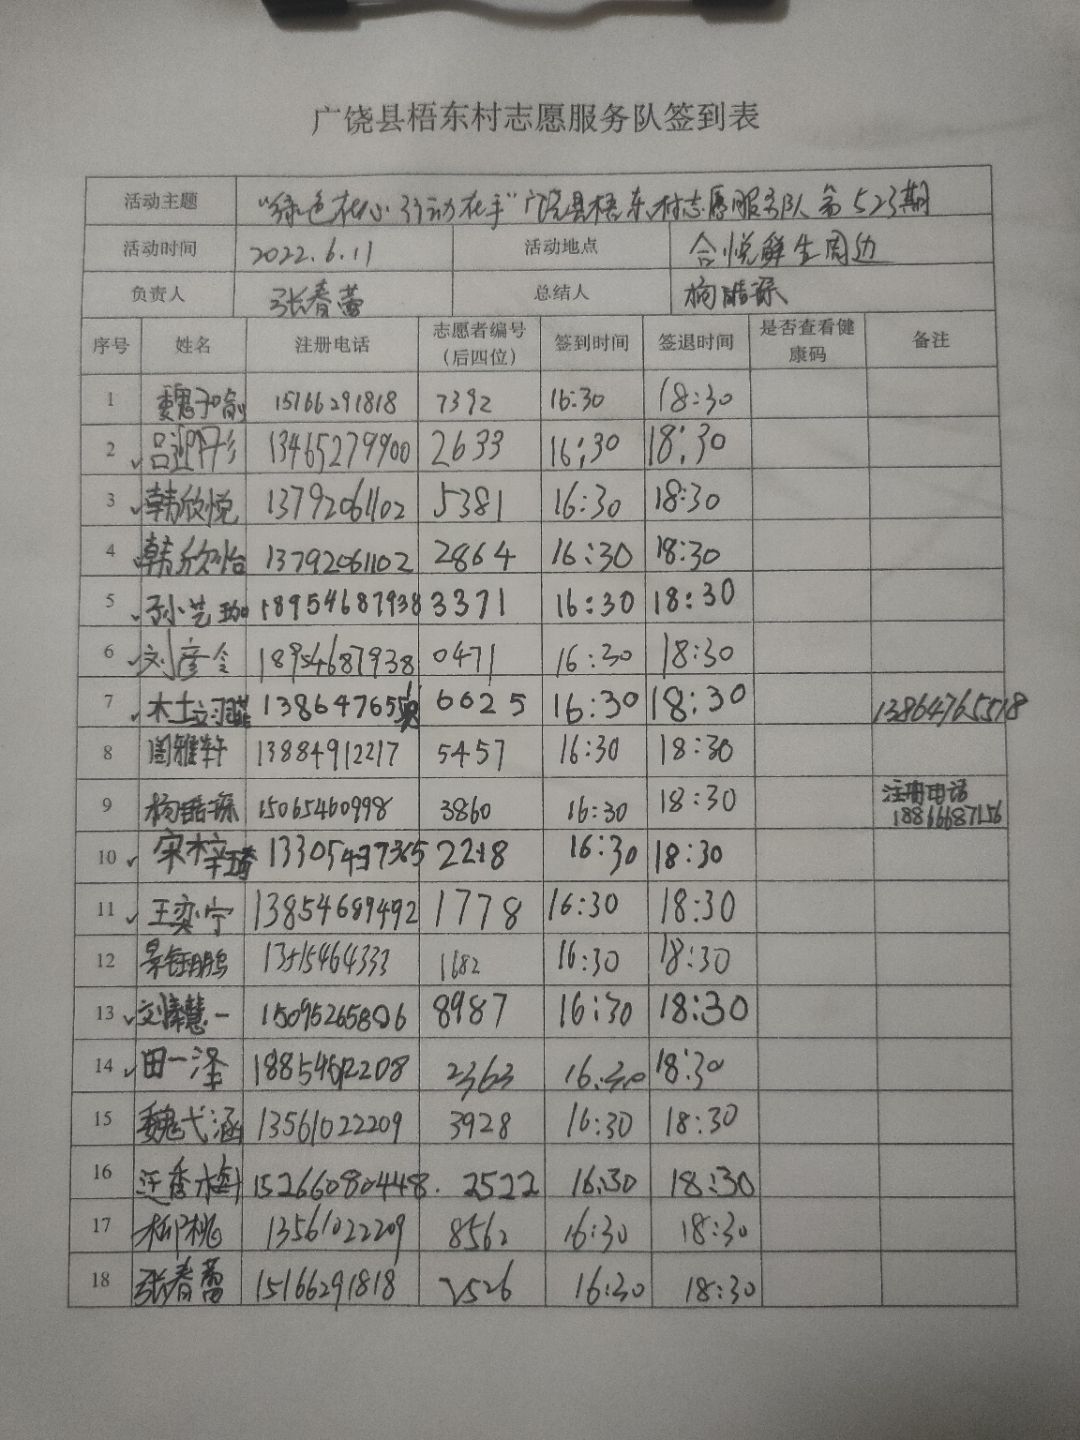 广饶县梧东村志愿服务队签到表
活动主题 "绿色在心 行动在手"广饶县梧东村志愿服务队第523期
活动时间 2022.6.11 活动地点 合悦鲜生周边
负责人 张春蕾 总结人 杨皓琛
序号 姓名 注册电话 志愿者编号（后四位） 签到时间 签退时间 是否查看健康码 备注
1 魏子喻 15166291818 7392 16:30 18:30
2 ✓ 吕迎彤 13465279900 2633 16:30 18:30
3 ✓ 韩欣悦 13792061102 5381 16:30 18:30
4 韩欣怡 13792061102 2864 16:30 18:30
5 ✓ 孙艺珈 18954687938 3371 16:30 18:30
6 ✓ 刘彦令 18954687938 0471 16:30 18:30
7 ✓ 13864765 6625 16:30 18:30 13864765518
8 阎雅轩 13884912217 5457 16:30 18:30
9 杨皓琛 15065460998 3860 16:30 18:30 注册电话 18866687156
10 ✓ 宋梓琦 13305497365 2218 16:30 18:30
11 ✓ 王奕宁 13854689492 1778 16:30 18:30
12 景钰鹏 13515464333 1682 16:30 18:30
13 ✓ 刘津慧一 15095265806 8987 16:30 18:30
14 ✓ 田一泽 18854612208 2363 16:30 18:30
15 魏弋涵 13561022209 3928 16:30 18:30
16 香梅 15266080448. 2522 16:30 18:30
17 柳桃 13561022209 8562 16:30 18:30
18 张春蕾 15166291818 2526 16:30 18:30